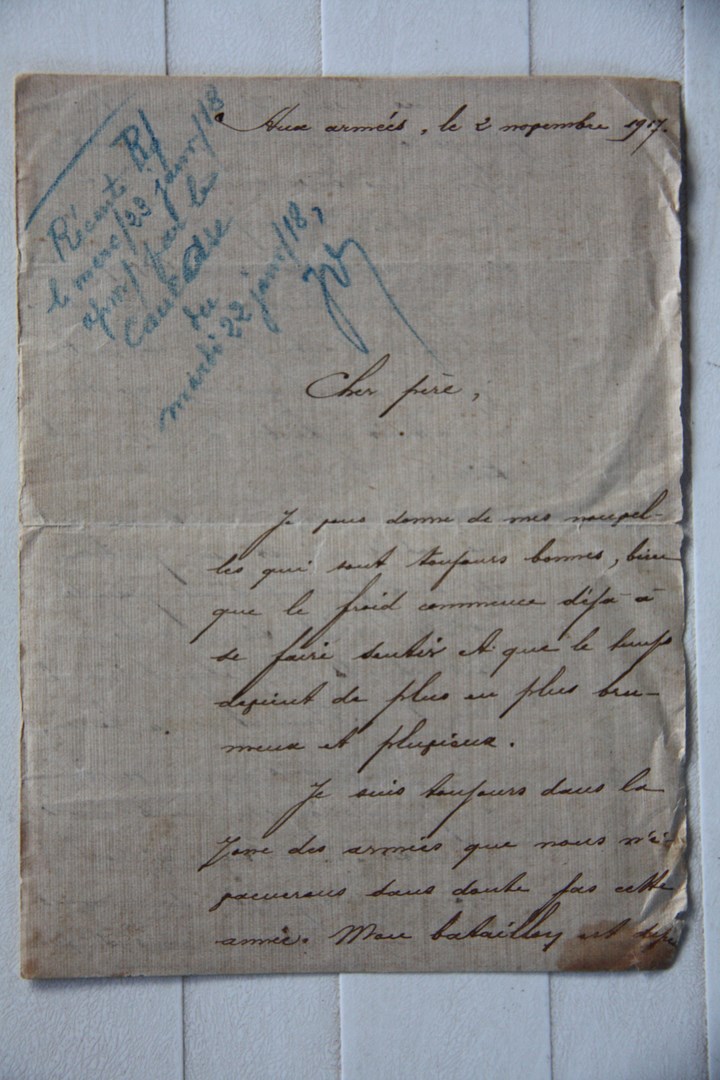 Aux armées, le 2 novembre 1917.
Récente Rf
le merc/23 janv/18
apm/ par le
du
mardi 22 janv/18,
Cher père,
Je vous donne de mes nouvel-
les qui sont toujours bonnes, bien
que le froid commence déjà à
se faire sentir et que le temps
devient de plus en plus bru-
meux et pluvieux.
Je suis toujours dans la
zone des armées que nous n'é-
vacuerons sans doute pas cette
année. Mon bataillon est